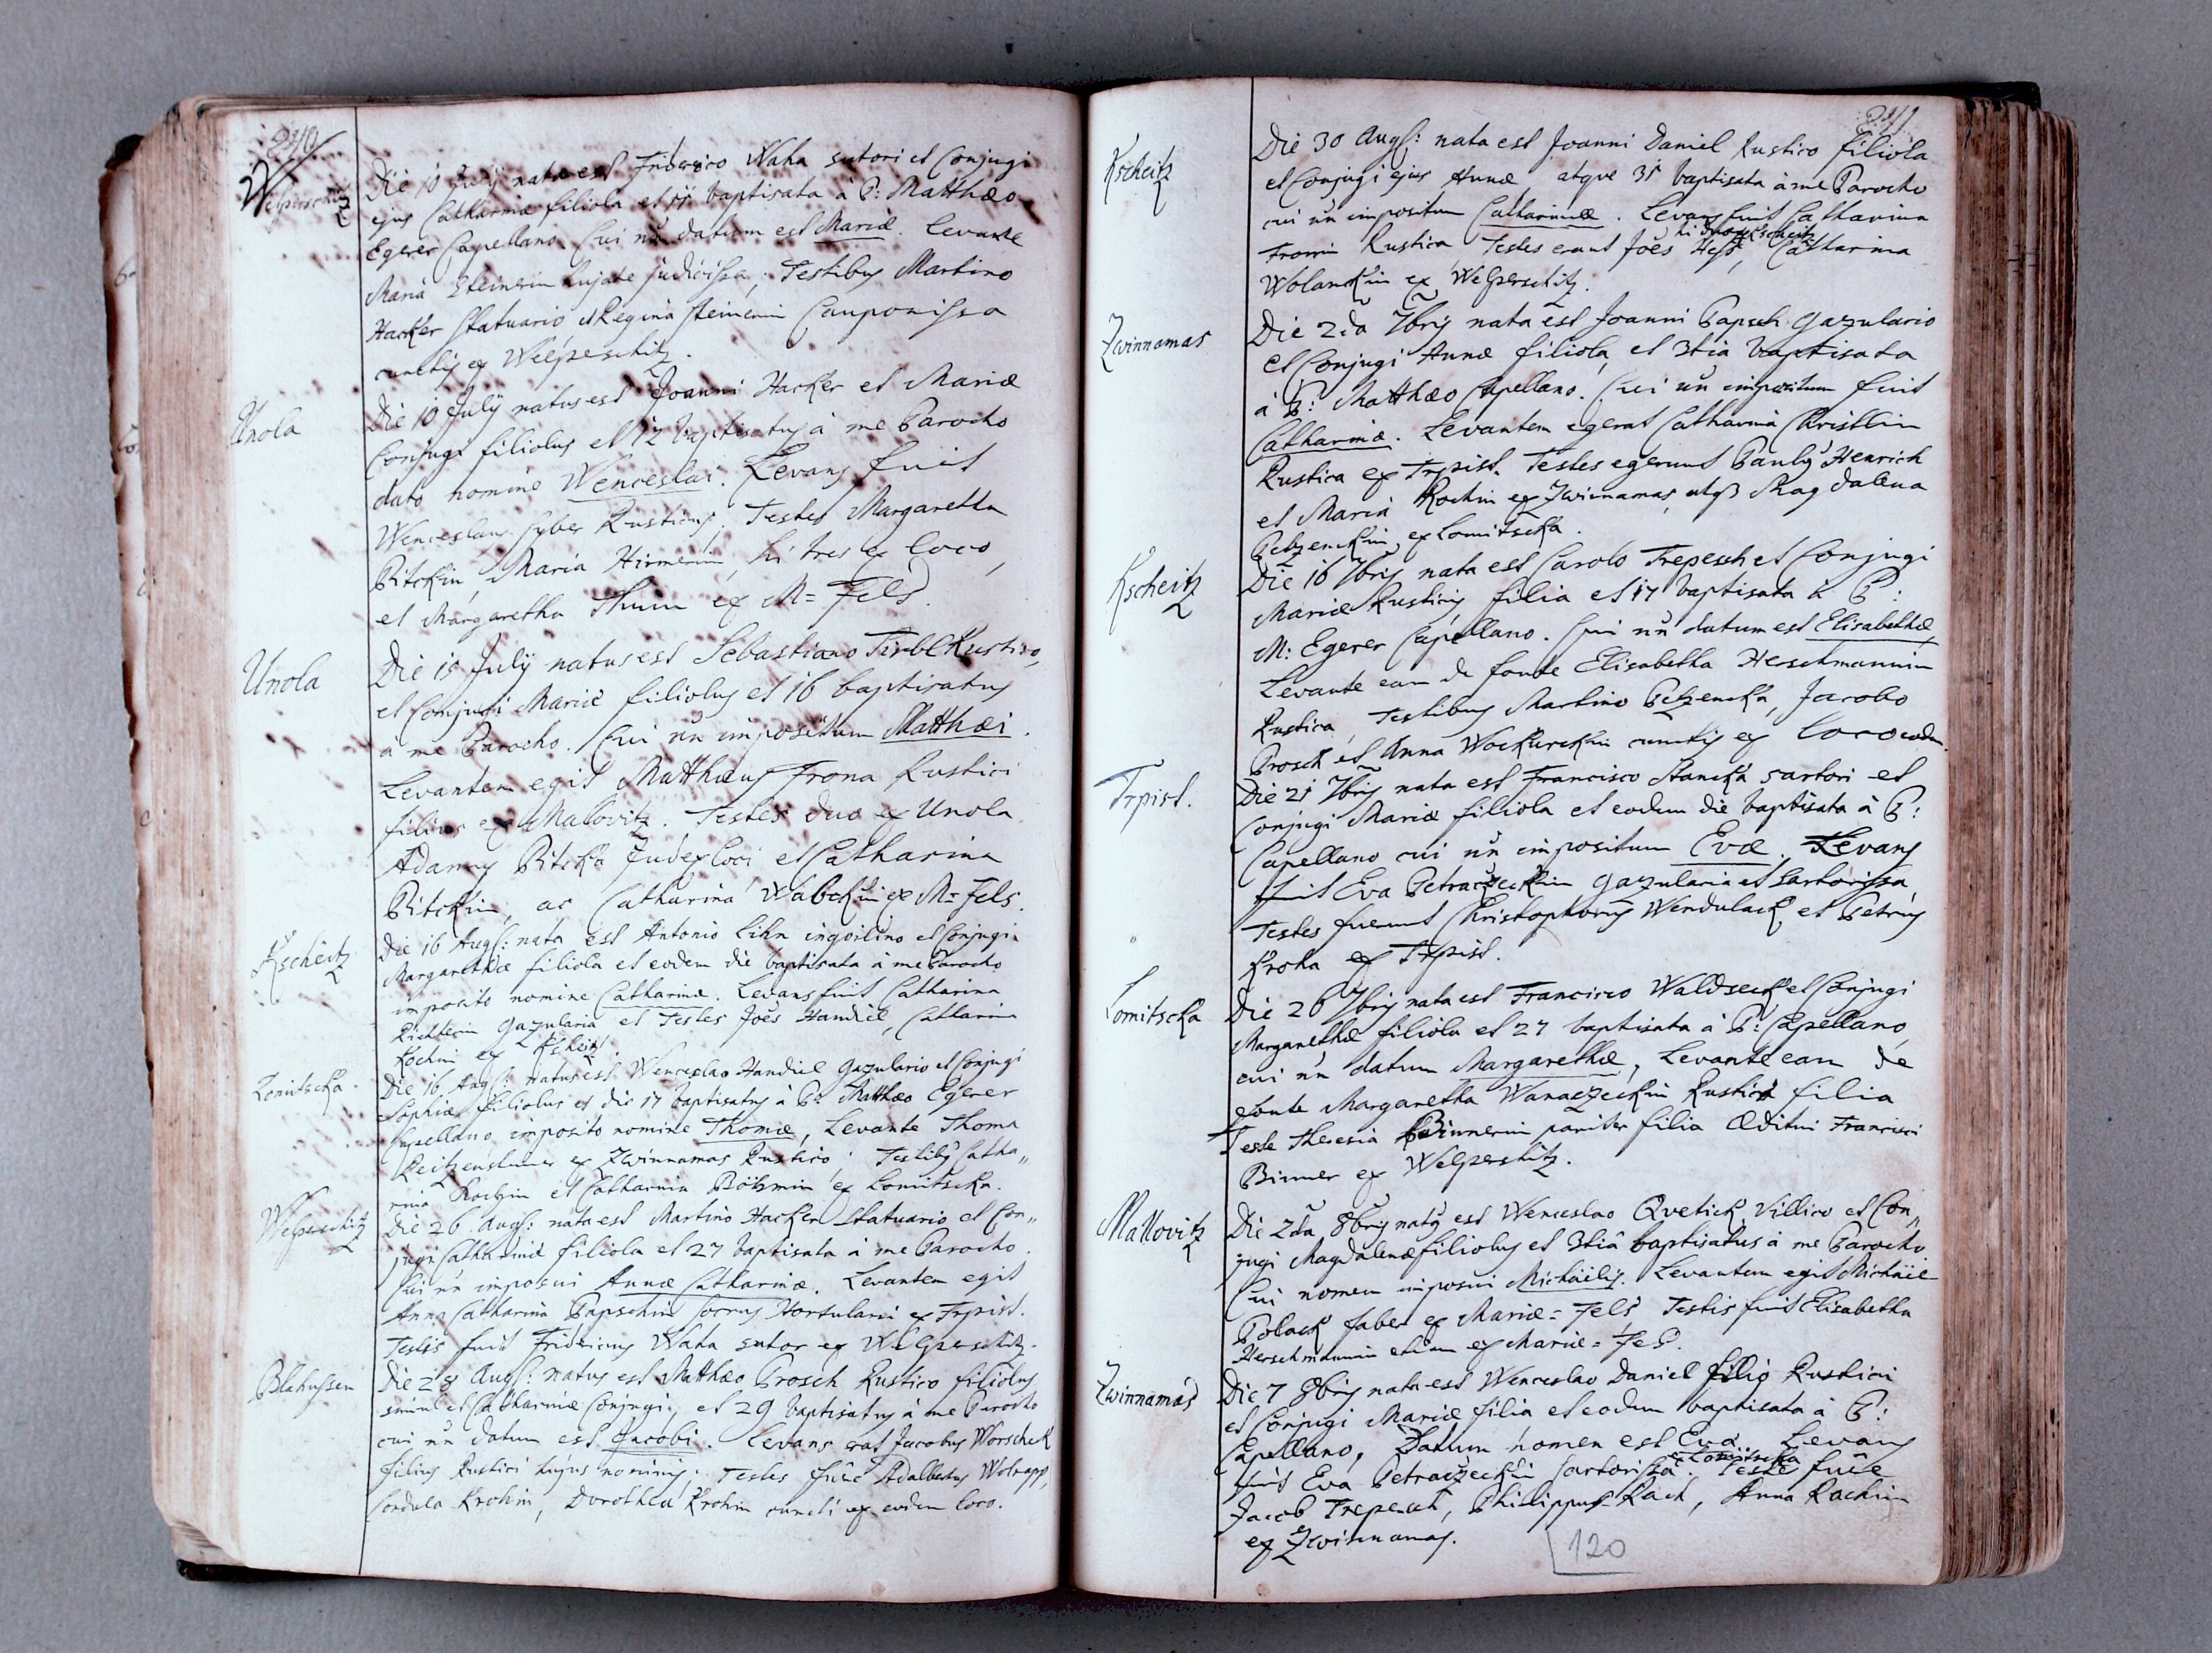 240
Welperschitz
Die 10 July nata est Friderico Waha sutori et Conjugi
ejus Catharinæ filiola et 11 baptisata à P: Matthæo
Egerer Capellano. Cui nn datum est Mariæ. Levante
Maria Steinerin hujate judicissa; Testibus Martino
Hacker Statuario et Regina Steinerin Cauponissa
cunctis ex Welperschitz.
Unola
Die 10 July natus est Joanni Hacker et Mariæ
Conjugi filiolus et 12 baptisatus à me Parocho
dato nomine Wenceslai. Levans fuit
Wenceslaus Syber Rusticus. Testes Margaretha
Bitckin, Maria Hirmerin, hi tres ex loco,
et Margaretha Thum ex M= Fels.
Unola
Die 15 July natus est Sebastiano Tirbl Rustico,
et Conjugi Mariæ filiolus et 16 baptisatus
à me Parocho. Cui nn impositum Matthæi.
Levantem egit Matthæus Frona Rustici
filius ex Malovitz. Testes duo ex Unola
Adamus Bitcka Judex loci et Catharina
Bitckin, ac Catharina Wabckin ex M= Fels.
Kscheitz
Die 16 Augs: nata est Antonio Lihn inquilino et Conjugi
Margarethæ filiola et eodem die baptisata à me Parocho
imposito nomine Catharinæ. Levans fuit Catharina
Richterin Gazularia et Testes Joes Handil, Catharin
Kochin ex Ksheitz.
Lomitscka.
Die 16 Augs: natus est Wenceslao Handil Gazulario et Conjugi
Sophiæ filiolus et die 17 baptisatus à P: Matthæo Egerer
Capellano imposito nomine Thomæ, Levante Thoma
Reitzenstumer ex Zwinnamas Rustico; Testibg Catha„
rina Kochin et Catharina Böhmin ex Lomitscka.
Welperschitz
Die 26 Augs: nata est Martino Hacker Statuario et Con„
jugi Catharinæ filiola et 27 baptisata à me Parocho.
Cui nn imposui Annæ Catharinæ. Levantem egit
Anna Catharina Papschin Hortulari ex Trpist.
Testis fuit Fridericus Waha sutor ex Welperschitz.
Blahussen
Die 28 Augs: natus est Matthæo Prosch Rustico filiolus
simul et Catharinæ Conjugi; et 29 baptisatus à me Parocho
cui nn datum est Jacobi. Levans erat Jacobus Worschek
filius Rustici hujus nominis; Testes fuêre Adalbertus Wolrapp,
Cordula Krohin, Dorothea Krohin cuncti ex eodem loco.
241
Kscheitz
Die 30 Augs: nata est Joanni Daniel Rustico filiola
et Conjugi ejus Annæ atque 31 baptisata à me Parocho
cui nn impositum Catharinæ. Levans fuit Catharina
hi duo ex Kscheitz
Fronin Rustica, Testes erant Joes Hess, Catharina
Wolanckin ex Welperschitz.
Zwinnamas
Die 2da 7bris nata est Joanni Papsch Gazulario
et Conjugi Annæ filiola, et 3tia baptisata
à P: Matthæo Capellano. Cui nn impositum fuit
Catharinæ. Levantem egerat Catharina Christlin
Rustica ex Trpist. Testes egerunt Paulg Henrich
et Maria Kochin ex Zwinnamas, atq3 Magdalena
Petzenckin ex Lomitscka.
Kscheitz
Die 16 7bris nata est Carolo Trepesch et Conjugi
Mariæ Rusticis filia et 17 baptisata à P:
M: Egerer Capellano. Cui nn datum est Elisabethæ,
Levante eam de fonte Elisabetha Herschmannin
Rustica, Testibus Martino Petzencka, Jacobo
Prosch et Anna Wockurckin cunctis ex loco eodm.
Trpist.
Die 21 7bris nata est Francisco Stancka sartori et
Conjugi Mariæ filiola et eodem die baptisata à P:
Capellano cui nn impositum Evæ. Levans
fuit Eva Petraczeckin gazularia et sartorissa,
Testes fuerunt Christophorus Wendulack et Petrus
Kroha ex Trpist.
Lomitscka
Die 26 7bris nata est Francisco Waldseck et Conjugi
Margarethæ filiola et 27 baptisata à P: Capellano,
cui nn datum Margarethæ, Levante eam de
fonte Margaretha Wanaczeckin Rustici filia
Teste Theresia Binnerin pariter filia Æditui Francisci
Binner ex Welperschitz.
Mallovitz
Die 2da 8bris natg est Wenceslao Qvetick Villico et Con„
jugi Magdalenæ filiolus et 3tiâ baptisatus à me Parocho.
Cui nomen imposui Michäelis. Levantem egit Michäel
Polack faber ex Mariæ= Fels, Testis fuit Elisabetha
Herschmannin etiam ex Mariæ= Fels.
Zwinnamas
Die 7 8bris nata est Wenceslao Daniel filio Rustici
et Conjugi Mariæ filia et eodem baptisata à P:
Capellano, Datum nomen est Eva. Levans
ex Lomitscka
fuit Eva Petraczeckin sartorissa. Teste fuêe
Jacob Trepesch, Philippus Rach, Anna Rachin
ex Zwinnamas.
120